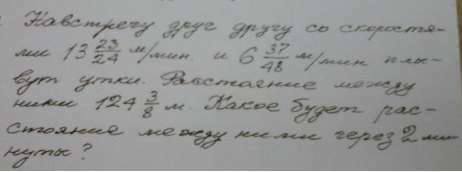 Навстречу друг другу со скоростя-
ми 13 23/24 м/мин. и 6 37/48 м/мин плы-
вут утки. Расстояние между
ними 124 3/8 м. Какое будет рас-
стояние между ними через 2 ми-
нуты?